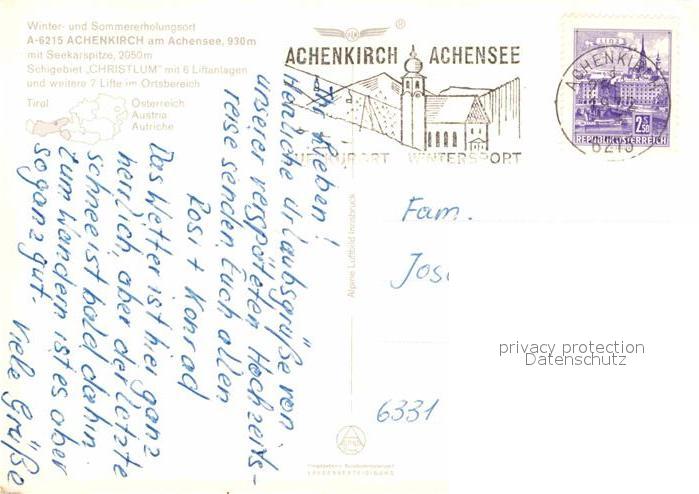 Winter- und Sommererholungsort
A-6215 ACHENKIRCH am Achensee, 930m
mit Seekarspitze, 2050m
Schigebiet „CHRISTLUM" mit 6 Liftanlagen
und weitere 7 Lifte im Ortsbereich
Tirol
Österreich
Austria
Autriche
ACHENKIRCH ACHENSEE
LUFTKURORT WINTERSPORT
ACHENKIRCH
6215
LINZ
2.50
REPUBLIK ÖSTERREICH
Ihr Lieben!
Herzliche Urlaubsgrüße von
unserer verspäteten Hochzeits-
reise senden Euch allen
Rosi + Konrad
Das Wetter ist hier ganz
herrlich, aber der letzte
Schnee ist bald dahin
zum Wandern ist es aber
so ganz gut. Viele Grüße
Alpine Luftbild Innsbruck
Fam.
Jos
6331
privacy protection
Datenschutz